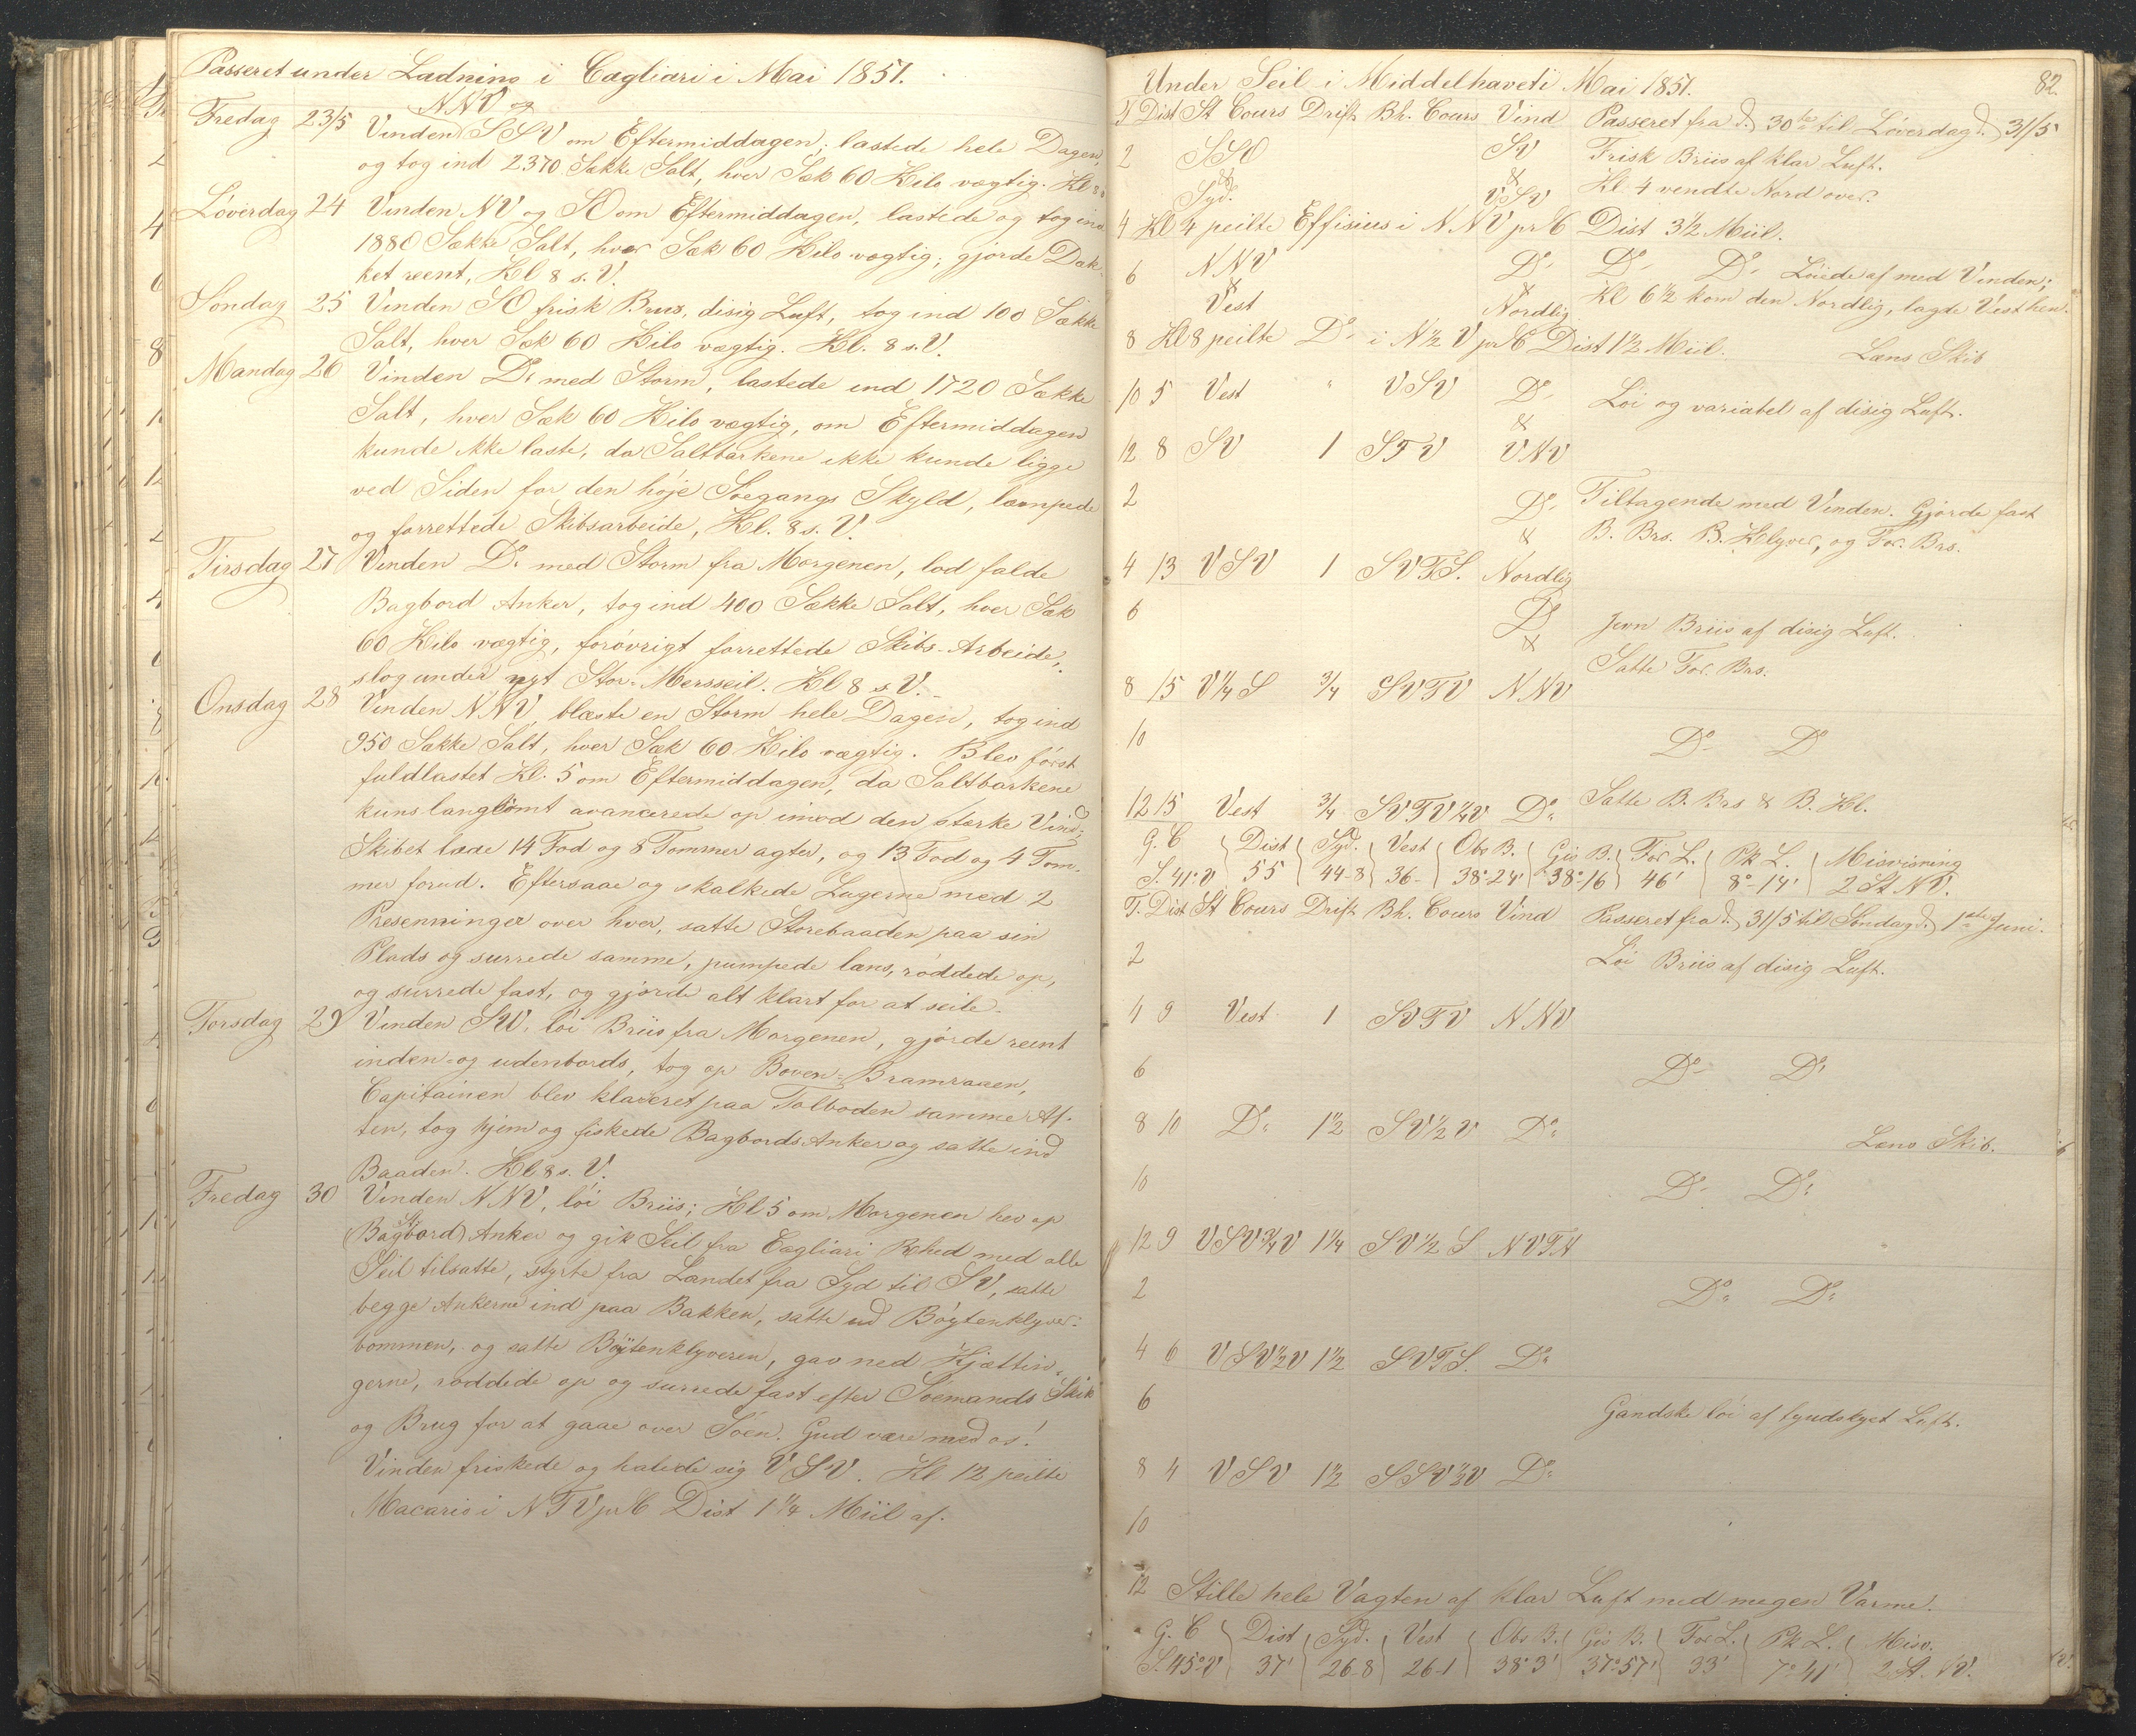 Passeret under Ladning i Cagliari i Mai 1851.
NNV og
Fredag 23/5 Vinden SSV om Eftermiddagen; lastede hele Dagen,
og tog ind 2370 Sække Salt, hver Sæk 60 Kilo vægtig. Kl 8
Löverdag 24 Vinden NV og SO om Eftermiddagen, lastede og tog ind
1880 Sække Salt, hver Sæk 60 Kilo vægtig; gjorde Dæk-
ket reent, Kl 8 s. V.
Söndag 25 Vinden SO frisk Briis, disig Luft, tog ind 100 Sække
Salt, hver Sæk 60 Kilo vægtig. Kl. 8 s. V.
Mandag 26 Vinden Do med Storm, lastede ind 1720 Sække
Salt, hver Sæk 60 Kilo vægtig, om Eftermiddagen
kunde ikke laste, da Saltbarkene ikke kunde ligge
ved Siden for den höje Söegangs Skyld, lænsede
og forrettede Skibsarbeide, Kl. 8 s. V.
Tirsdag 27 Vinden Do med Storm fra Morgenen, lod falde
Bagbord Anker, tog ind 400 Sække Salt, hver Sæk
60 Kilo vægtig, forövrigt forrettede Skibs-Arbeide,
slog under nyt Stor-Mersseil. Kl 8 s. V.
Onsdag 28 Vinden NNV, blæste en Storm hele Dagen, tog ind
950 Sække Salt, hver Sæk 60 Kilo vægtig. Blev först
fuldlastet Kl. 5 om Eftermiddagen, da Saltbarkene
kuns langsomt avancerede op imod den stærke Vind;
Skibet laae 14 Fod og 8 Tommer agter, og 13 Fod og 4 Tom-
mer forud. Eftersaae og skalkede Lugerne med 2
Presenninger over hver, satte Storebaaden paa sin
Plads og surrede samme, pumpede læns, röddede op,
og surrede fast, og gjorde alt klart for at seile.
Torsdag 29 Vinden NV, löi Briis fra Morgenen, gjörde reent
inden- og udenbords, tog op Boven-Bramraaen,
Capitainen blev klareret paa Tolboden samme Af-
ten, tog hjem og fiskede Bagbords Anker og satte ind
Baaden. Kl 8 s. V.
Fredag 30 Vinden NNV, löi Briis; Kl 5 om Morgenen hev op
St
(Bagbord) Anker og gik Seil fra Cagliari Rhed med alle
Seil tilsatte, styrte fra Landet fra Syd til SV, satte
begge Ankerne ind paa Bakken, satte ud Böytenklyver-
bommen, og satte Böytenklyveren, gav ned Kjættin-
gerne, röddede op og surrede fast efter Söemands Skik
og Brug for at gaae over Söen. Gud være med os!
Vinden friskede og halede sig VSV. Kl 12 peilte
Macario i NTV pr C Dist 1 1/4 Miil af.
82.
Under Seil i Middelhavet i Mai 1851.
T Dist St Cours Drift Bh. Cours Vind Passeret fra d. 30te til Löverdag d. 31/5
2 SSO SV Frisk Briis af klar Luft.
& &
Syd. VSV Kl 4 vendte Nord over.
4 Kl 4 peilte Effisius i NNV pr C Dist 3 1/2 Miil.
6 NNV Do Do Do Löiede af med Vinden;
& &
Vest Nordlig Kl 6 1/2 kom den Nordlig, lagde Vest hen.
8 Kl 8 peilte Do i N 1/2 V pr C Dist 1 1/2 Miil. Læns Skib
10 5 Vest " VSV Do Löi og variabel af disig Luft.
&
12 8 SV 1 STV VNV
2 Do Tiltagende med Vinden. Gjorde fast
& B. Brs. B. Klyver, og For. Brs.
4 13 VSV 1 SVTS. Nordlig
6 Do Jevn Briis af disig Luft.
&
Satte For. Brs.
8 15 V 1/4 S 3/4 SVTV NNV
10 Do Do
12 15 Vest 3/4 SVTV 1/4 V Do Satte B. Brs & B. Kl.
G. C Dist Syd. Vest Obs B. Gis B. For L. Pk L. Misvisning
S. 41° V 55 44-8 36- 38°24' 38°16 46' 8°-14' 2 St NV.
T. Dist St Cours Drift Bh. Cours Vind Passeret fra d. 31/5 til Söndag d. 1ste Juni.
2 Löi Briis af disig Luft.
4 9 Vest 1 SVTV NNV
6 Do Do
8 10 Do 1 1/2 SV 1/2 V Do Læns Skib.
10 Do Do
12 9 VSV 3/4 V 1 1/4 SV 1/2 S NVTN
2 Do Do
4 6 VSV 1/2 V 1 1/2 SVTS. Do
6 Gandske löi af tyndskyet Luft.
8 4 VSV 1 1/2 SSV 1/2 V Do
10
12 Stille hele Vagten af klar Luft med megen Varme.
G. C Dist Syd. Vest Obs B. Gis B. For L. Pk L. Misv.
S. 45° V 37' 26-8 26-1 38°3' 37°57' 33' 7°41' 2 St. NV.